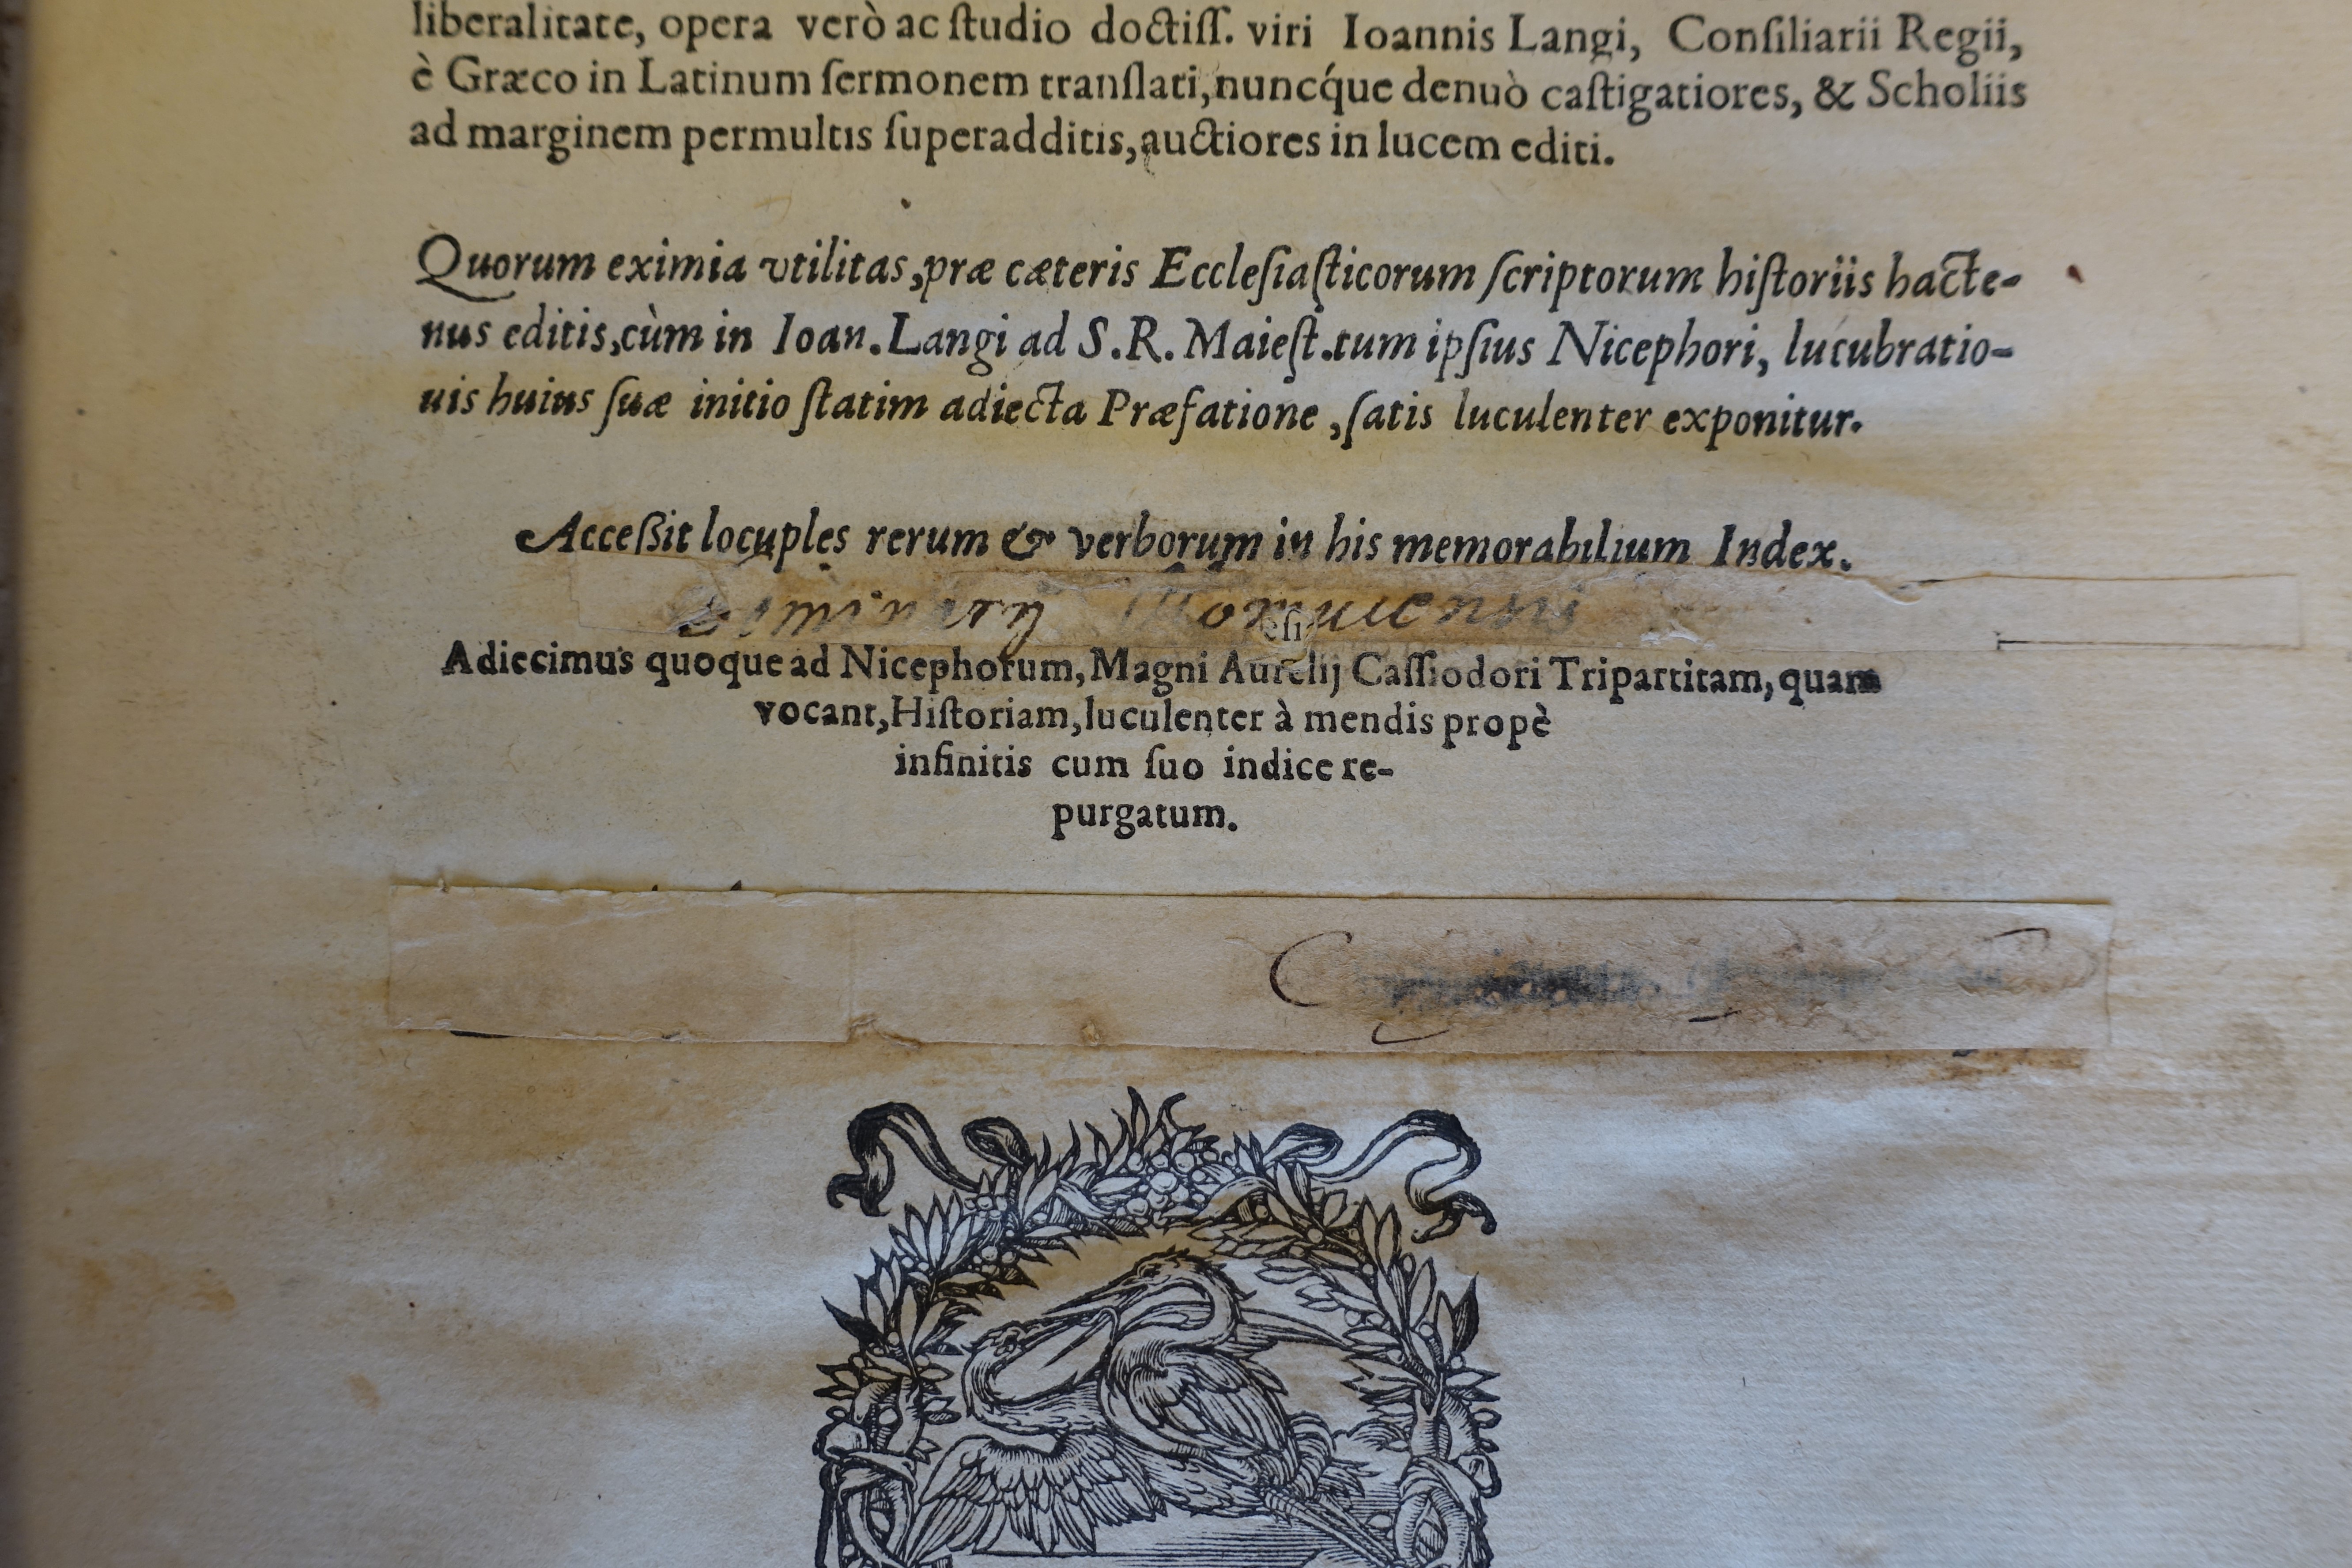 liberalitate, opera verò ac ſtudio doctiſſ. viri Ioannis Langi, Conſiliarii Regii,
è Græco in Latinum ſermonem tranſlati, nuncq́ue denuò caſtigatiores, & Scholiis
ad marginem permultis ſuperadditis, auctiores in lucem editi.
Quorum eximia vtilitas, præ cæteris Eccleſiaſticorum ſcriptorum hiſtoriis hacte-
nus editis, cùm in Ioan. Langi ad S. R. Maieſt. tum ipſius Nicephori, lucubratio-
nis huius ſuæ initio ſtatim adiecta Præfatione, ſatis luculenter exponitur.
Acceßit locuples rerum & verborum in his memorabilium Index.
Adiecimus quoque ad Nicephorum, Magni Aurelij Caſſiodori Tripartitam, quam
vocant, Hiſtoriam, luculenter à mendis propè
infinitis cum ſuo indice re-
purgatum.